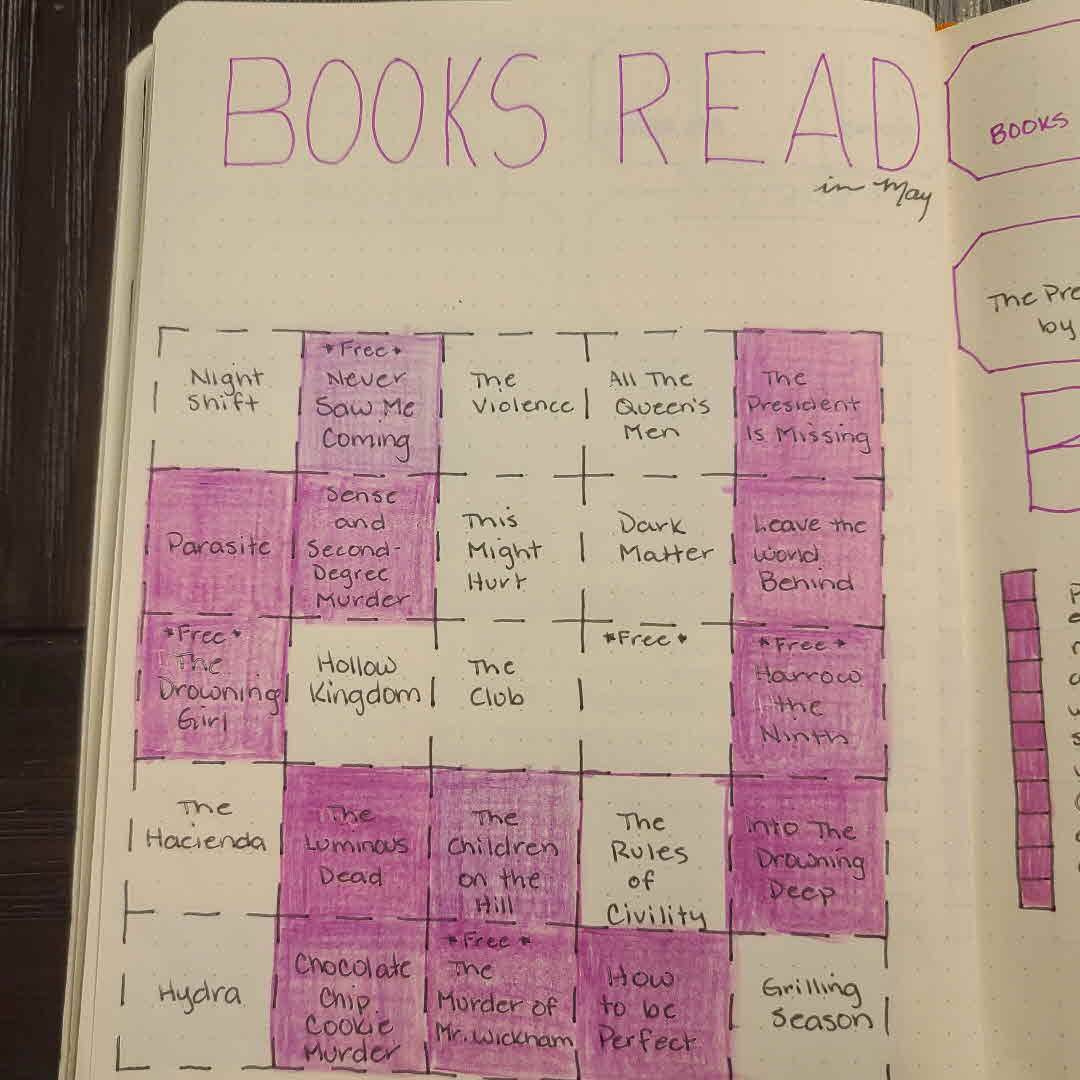 BOOKS READ
in May
Night
Shift
*Free*
Never
Saw Me
Coming
The
Violence
All The
Queen's
Men
The
President
Is Missing
Parasite
Sense
and
Second-
Degree
Murder
This
Might
Hurt
Dark
Matter
Leave the
World
Behind
*Free*
The
Drowning
Girl
Hollow
Kingdom
The
Club
*Free*
*Free*
Harrow
the
Ninth
The
Hacienda
The
Luminous
Dead
The
Children
on the
Hill
The
Rules
of
Civility
Into The
Drowning
Deep
Hydra
Chocolate
Chip
Cookie
Murder
*Free*
The
Murder of
Mr. Wickham
How
to be
Perfect
Grilling
Season
BOOKS
The Pre
by